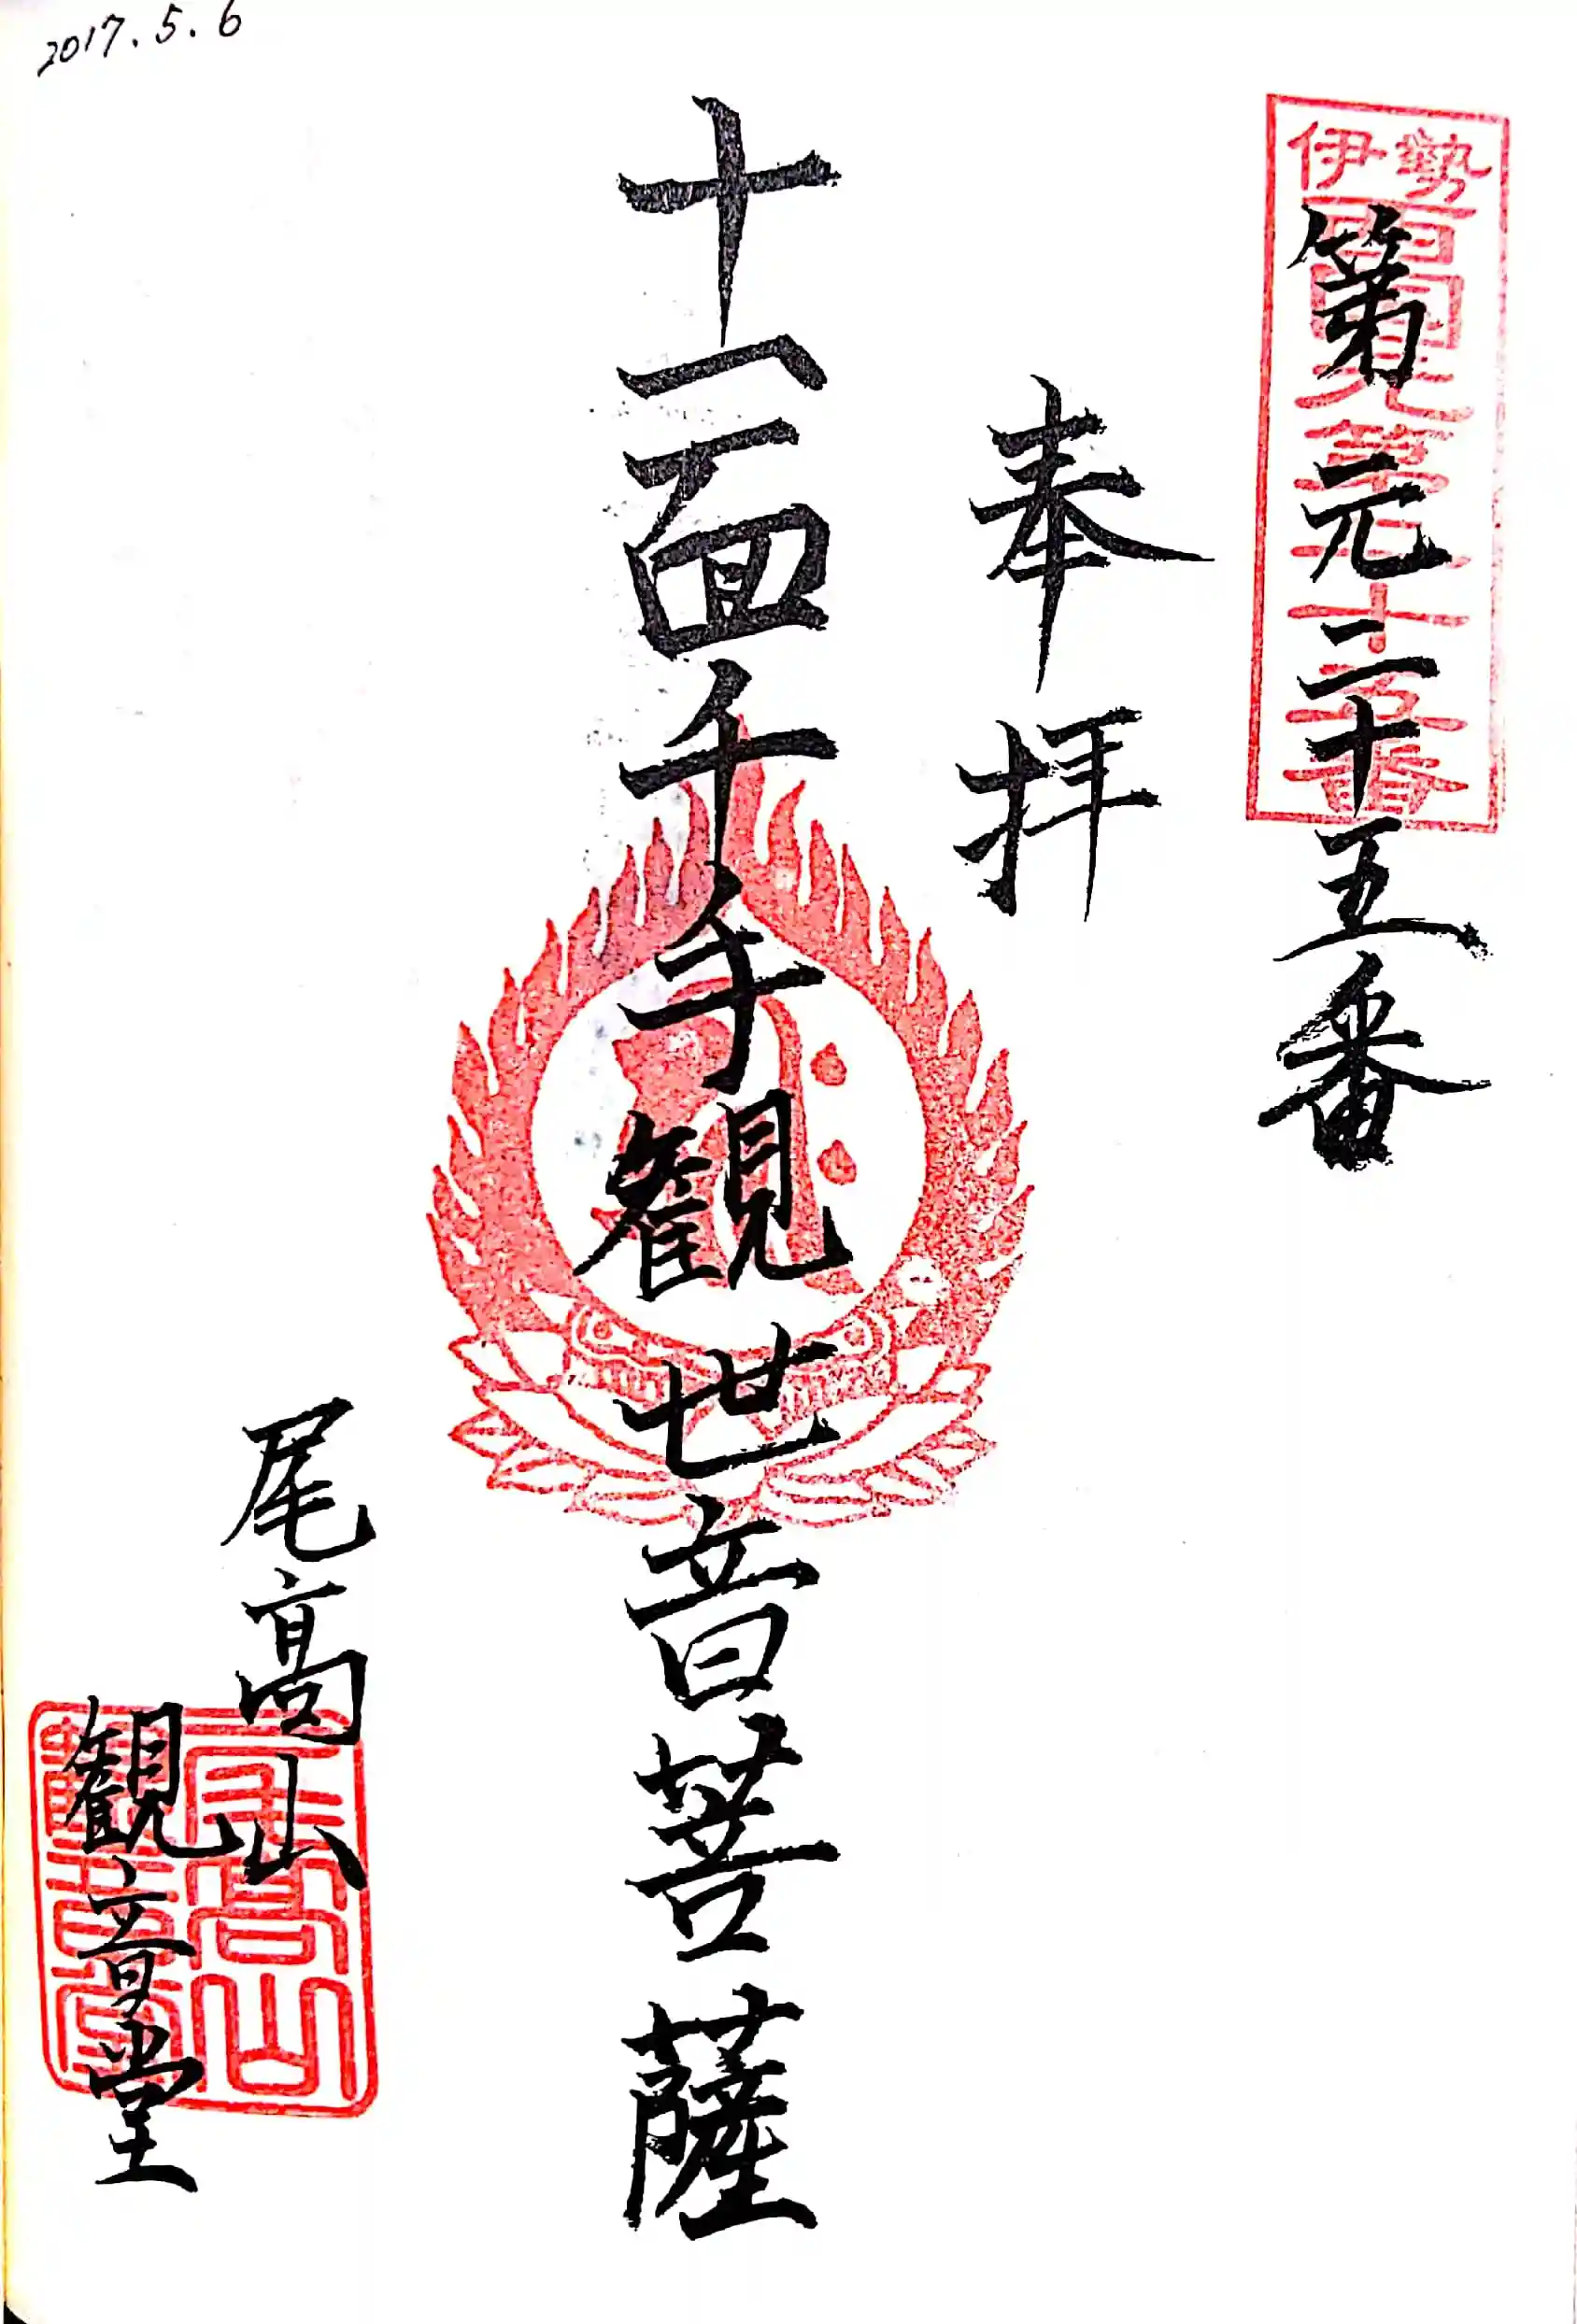 2017.5.6
伊勢
西国三十三所第二十五番
第元二十五番
奉拝
十一面千手観世音菩薩
尾高山
観音堂
尾高山
観音堂